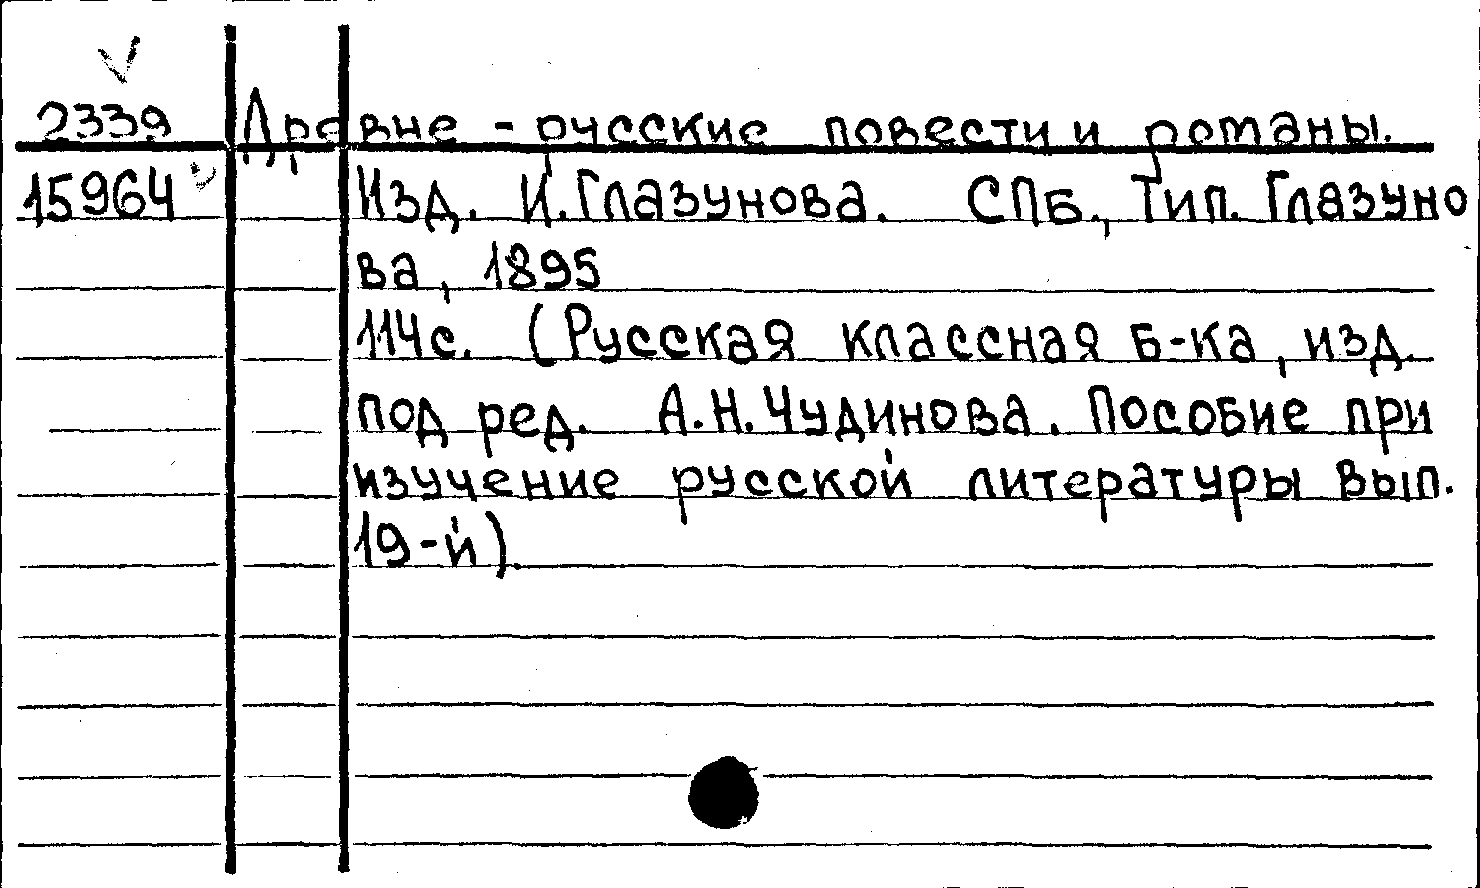 2339 Древне - русские повести и романы.
15964 Изд. И. Глазунова. СПБ., Тип. Глазуно
ва, 1895
114с. (Русская классная Б-ка, изд.
под ред. А.Н. Чудинова. Пособие при
изучение русской литературы Вып.
19-й).